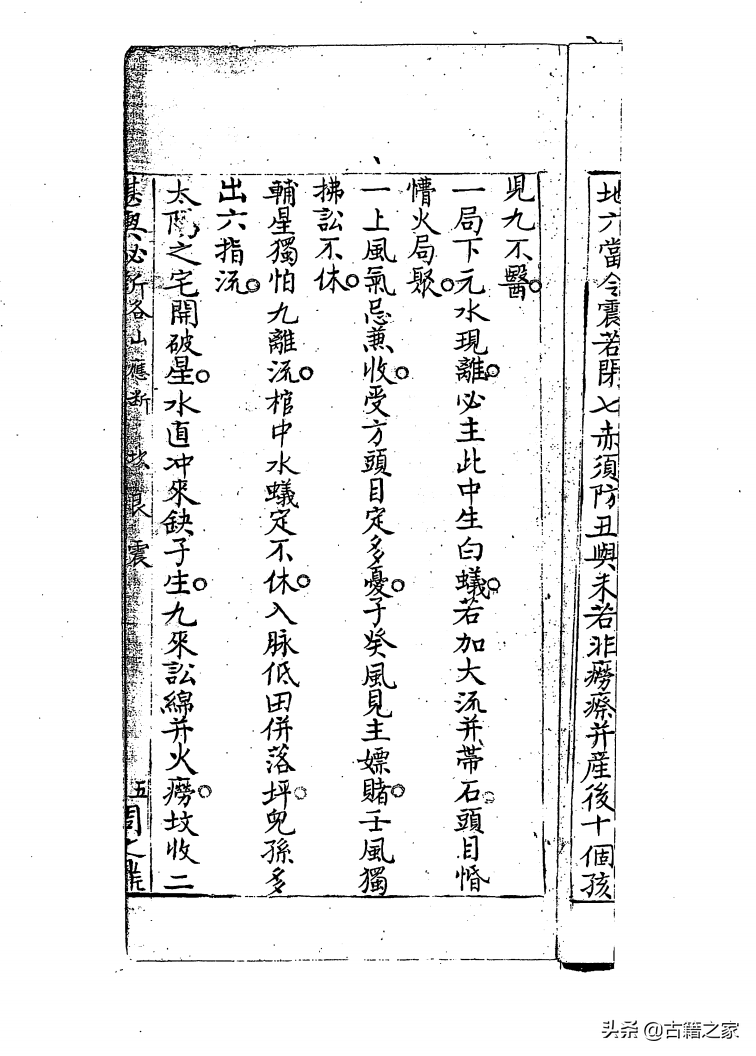 地六當令震若閉七赤須防丑與未若非癆瘵并産後十個孩
見九不醫
一局下元水現離必主此中生白蟻若加大流并帶石頭目惛
懵火局聚
一上風氣忌兼收受方頭目定多憂子癸風見主嫖賭壬風獨
拂訟不休
輔星獨怕九離流棺中水蟻定不休入脉低田併落坪兒孫多
出六指流
太陽之宅開破星水直冲來缺子生九來訟綿并火癆坟收二
各山應断 坎艮震 五
头条@古籍之家